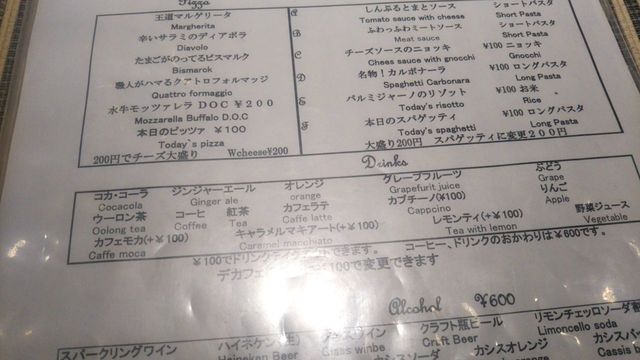 Pizza
王道マルゲリータ
Margherita
辛いサラミのディアボラ
Diavolo
たまごがのってるビスマルク
Bismarok
職人がハマるクアトロフォルマッジ
Quattro formaggio
水牛モッツァレラ DOC ¥200
Mozzarella Buffalo D.O.C
本日のピッツァ ¥100
Today's pizza
200円でチーズ大盛り Wcheese¥200
A
B
C
D
E
F
しんぷるとまとソース ショートパスタ
Tomato sauce with cheese Short Pasta
ふわっふわミートソース ショートパスタ
Meat sauce Short Pasta
チーズソースのニョッキ ¥100 ニョッキ
Chees sauce with gnocchi Gnocchi
名物！カルボナーラ ¥100 ロングパスタ
Spaghetti Carbonara Long Pasta
パルミジャーノのリゾット ¥100 お米
Today's risotto Rice
本日のスパゲッティ ¥100 ロングパスタ
Today's spaghetti Long Pasta
大盛り200円 スパゲッティに変更200円
Drinks
コカ・コーラ ジンジャーエール オレンジ グレープフルーツ ぶどう
Cocacola Ginger ale orange Grapefurit juice Grape
ウーロン茶 コーヒ 紅茶 カフェラテ カプチーノ(¥100) りんご
Oolong tea Coffee Tea Caffe latte Cappcino Apple
カフェモカ(+¥100) キャラメルマキアート(+¥100) レモンティ(+¥100) 野菜ジュース
Caffe moca Caramel macchiato Tea with lemon Vegetable
¥100でドリンクテイクアウトできます。 コーヒー、ドリンクのおかわりは¥600です。
デカフェ ¥100で変更できます
Alcohol ¥600
スパークリングワイン ハイネケン(生) グラスワイン クラフト瓶ビール リモンチェッロソーダ
Heineken Beer Glass winbe Craft Beer Limoncello soda
カシスソーダ カシスオレンジ カシス